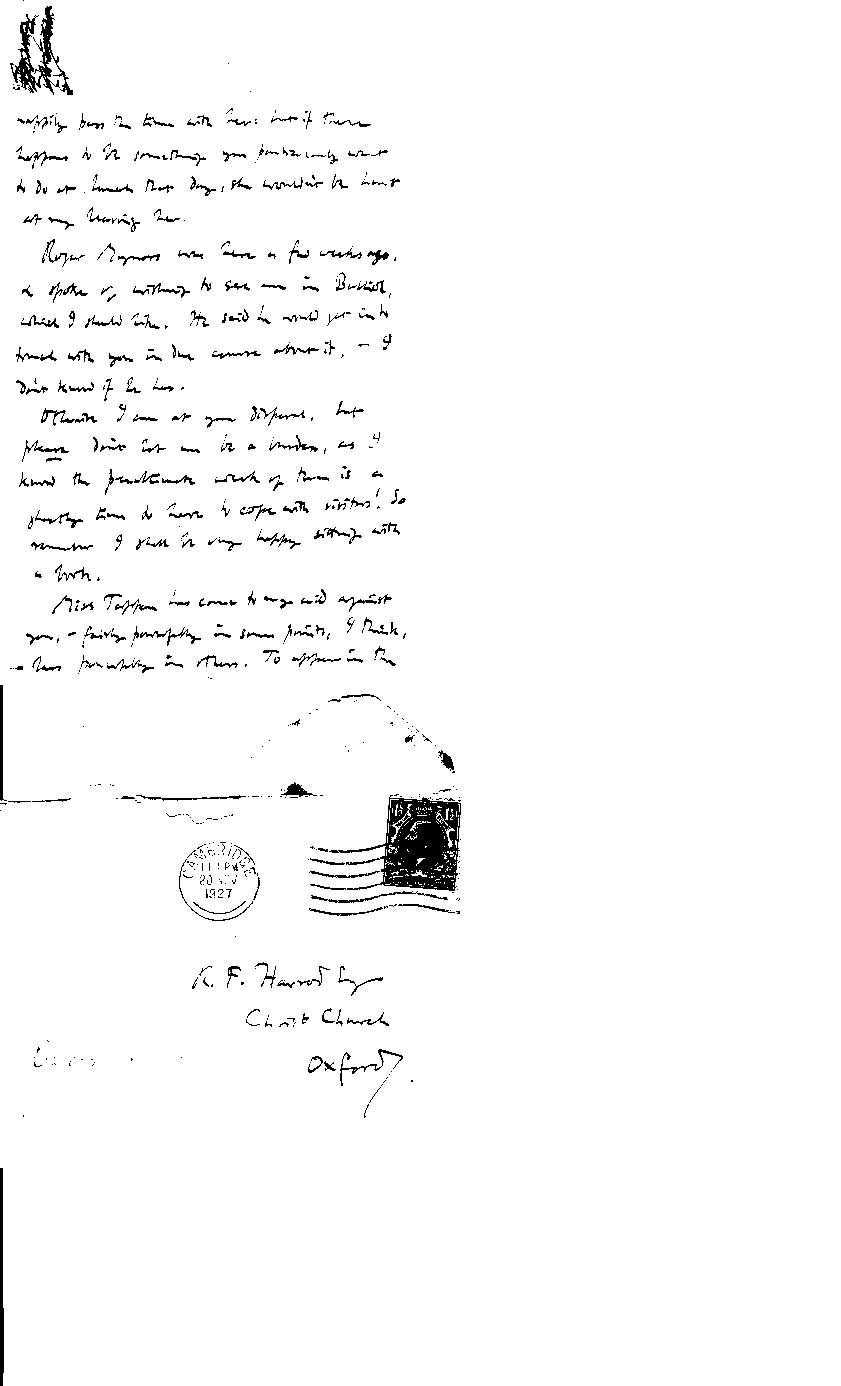 happily pass the time with her: but if there
happens to be something you particularly want
to do at lunch that day, she wouldn't be hurt
at my leaving her.
Roger Mynors was here a few weeks ago,
& spoke of wishing to see me in Balliol,
which I should like. He said he would get into
touch with you in due course about it, – I
don't know if he has.
Otherwise I am at your disposal, but
please don't let me be a burden, as I
know the penultimate week of term is a
ghastly time to have to cope with visitors! So
remember I shall be very happy sitting with
a book.
Miss Tappan has come to my aid against
you, – fairly powerfully in some points, I think,
– less powerfully in others. To appear in the
CAMBRIDGE
PM
20 NOV
1927
R. F. Harrod Esq
Christ Church
Oxford